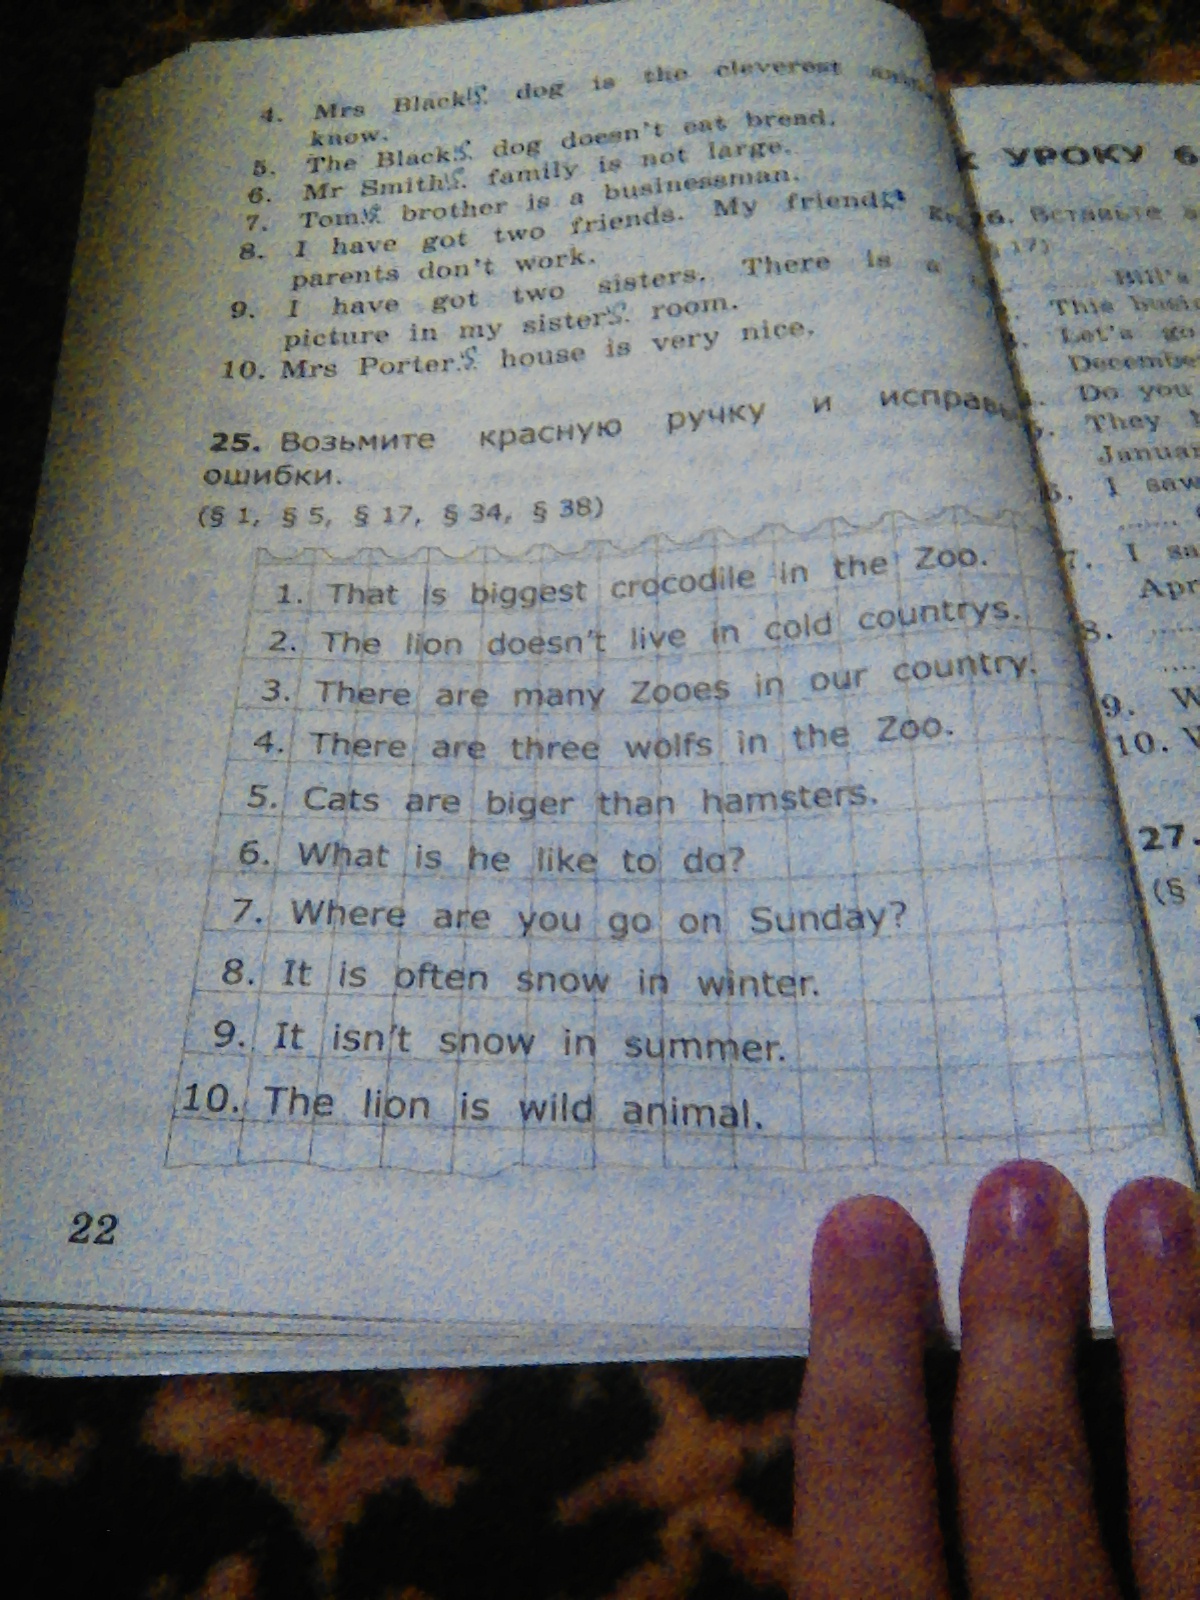 4. Mrs Black's dog is the cleverest
know.
5. The Blacks' dog doesn't eat bread.
6. Mr Smith's family is not large.
7. Tom's brother is a businessman.
8. I have got two friends. My friends'
parents don't work.
9. I have got two sisters. There is a
picture in my sisters' room.
10. Mrs Porter's house is very nice.
25. Возьмите красную ручку и
ошибки.
(§ 1, § 5, § 17, § 34, § 38)
1. That is biggest crocodile in the Zoo.
2. The lion doesn't live in cold countrys.
3. There are many Zooes in our country.
4. There are three wolfs in the Zoo.
5. Cats are biger than hamsters.
6. What is he like to do?
7. Where are you go on Sunday?
8. It is often snow in winter.
9. It isn't snow in summer.
10. The lion is wild animal.
22
УРОКУ 6
26. Вставьте
17)
Bill's
This
Let's go
Do you
They
I saw
7. I
8.
9.
10.
27.
(§